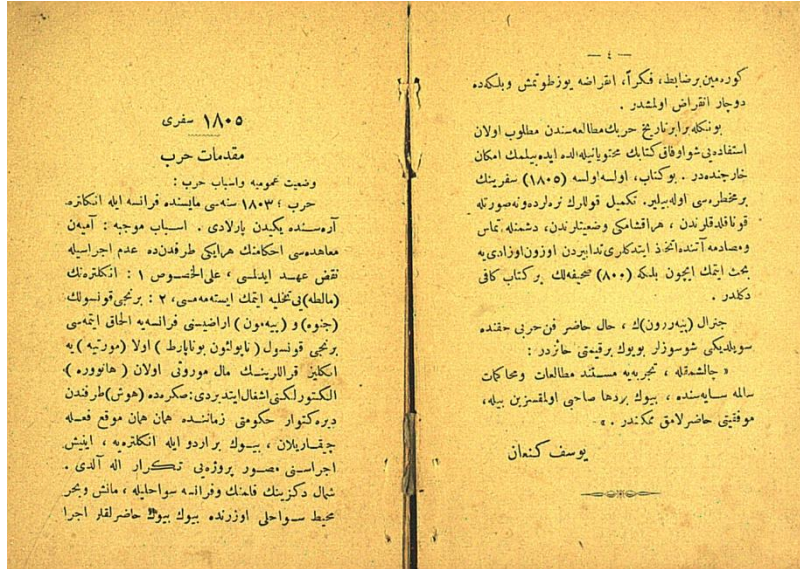 — ٤ —
كورەمین برضابط، فكراً، انقراضه یوزطوتمش وبلكەده
دوچار انقراض اولمشدر .
بونكله برابر تاریخ حربك مطالعه‌سندن مطلوب اولان
استفاده‌یی شو اوفاق كتابك محتویاتیله الده ایده‌بیلمك امكان
خارجنده‌در . بوكتاب، اولسه اولسه (١٨٠٥) سفرینك
برمخطره‌سی اوله‌بیلیر. تكمیل قوللرك نره‌لرده ونه صورتله
قوناقلادقلرندن ، هراقشامكی وضعیتلرندن، دشمنله تماس
ومصادمه آننده اتخاذ ایتدكلری تدابیردن اوزون اوزادی‌یه
بحث ایتمك ایچون بلكه (٨٠٠) صحیفه‌لك بر كتاب كافی
دكلدر .
جنرال (پیه‌ررون)ك ، حال حاضر فن حربی حقنده
سویلدیكی شوسوزلر بویوك برقیمتی حائزدر :
« چالشمقله ، تجربه‌یه مستند مطالعات ومحاكمات
سالمه سایه‌سنده ، بیوك بردها صاحبی اولمقسزین بیله،
موفقیتی حاضرلامق ممكندر . »
یوسف كنعان
١٨٠٥ سفری
مقدمات حرب
وضعیت عمومیه واسباب حرب :
حرب ؛ ١٨٠٣ سنه‌سی مایسنده فرانسه ایله انكلتره
آره‌سنده یكیدن پارلادی . اسباب موجبه : آمیه‌ن
معاهده‌سی احكامنك هرایكی طرفدن‌ده عدم اجراسیله
نقض عهد ایدلمسی ، علی‌الخصوص ١ : انكلتره‌نك
(مالطه)یی تخلیه ایتمك ایسته‌مه‌مسی، ٢ : برنجی قونسولك
(جنوه) و (پیه‌مون) اراضیسنی فرانسه‌یه الحاق ایتمه‌سی
برنجی قونسول (ناپولئون بوناپارط) اولا (مورتیه) یه
انكلیز قراللرینك مال موروثی اولان (هانووره)،
الكتورلكنی اشغال ایتدیردی؛ صكره‌ده (هوش) طرفندن
دیره‌كتوار حكومتی زماننده همان همان موقع فعله
چیقاریلان ، بیوك بر اردو ایله انكلتره‌یه ، اینیش
اجراسنی مصور پروژه‌یی تكرار اله آلدی .
شمال دكزینك فلمنك وفرانسه سواحلیله ، مانش وبحر
محیط سواحلی اوزرنده بیوك بیوك حاضرلقلر اجرا